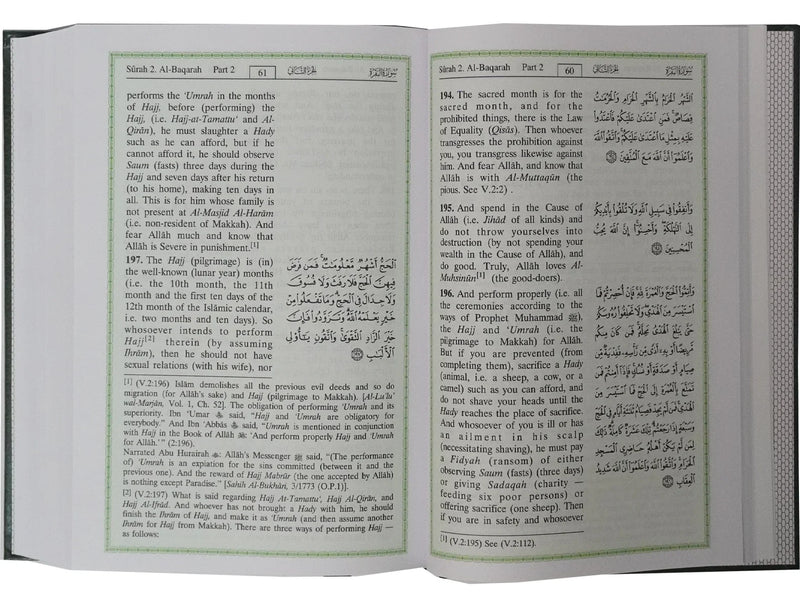 Sûrah 2. Al-Baqarah Part 2 60 الجزء الثاني سورة البقرة
194. The sacred month is for the
sacred month, and for the
prohibited things, there is the Law
of Equality (Qisâs). Then whoever
transgresses the prohibition against
you, you transgress likewise against
him. And fear Allâh, and know that
Allâh is with Al-Muttaqûn (the
pious. See V.2:2) .
الشَّهْرُ الْحَرَامُ بِالشَّهْرِ الْحَرَامِ وَالْحُرُمَٰتُ
قِصَاصٌ فَمَنِ اعْتَدَىٰ عَلَيْكُمْ فَاعْتَدُوا
عَلَيْهِ بِمِثْلِ مَا اعْتَدَىٰ عَلَيْكُمْ وَاتَّقُوا اللَّهَ
وَاعْلَمُوا أَنَّ اللَّهَ مَعَ الْمُتَّقِينَ ١٩٤
195. And spend in the Cause of
Allâh (i.e. Jihâd of all kinds) and
do not throw yourselves into
destruction (by not spending your
wealth in the Cause of Allâh), and
do good. Truly, Allâh loves Al-
Muhsinûn[1] (the good-doers).
وَأَنفِقُوا فِي سَبِيلِ اللَّهِ وَلَا تُلْقُوا بِأَيْدِيكُمْ
إِلَى التَّهْلُكَةِ وَأَحْسِنُوا إِنَّ اللَّهَ يُحِبُّ
الْمُحْسِنِينَ ١٩٥
196. And perform properly (i.e. all
the ceremonies according to the
ways of Prophet Muhammad ﷺ),
the Hajj and ‘Umrah (i.e. the
pilgrimage to Makkah) for Allâh.
But if you are prevented (from
completing them), sacrifice a Hady
(animal, i.e. a sheep, a cow, or a
camel) such as you can afford, and
do not shave your heads until the
Hady reaches the place of sacrifice.
And whosoever of you is ill or has
an ailment in his scalp
(necessitating shaving), he must pay
a Fidyah (ransom) of either
observing Saum (fasts) (three days)
or giving Sadaqah (charity —
feeding six poor persons) or
offering sacrifice (one sheep). Then
if you are in safety and whosoever
وَأَتِمُّوا الْحَجَّ وَالْعُمْرَةَ لِلَّهِ فَإِنْ أُحْصِرْتُمْ فَمَا
اسْتَيْسَرَ مِنَ الْهَدْيِ وَلَا تَحْلِقُوا رُءُوسَكُمْ
حَتَّىٰ يَبْلُغَ الْهَدْيُ مَحِلَّهُ فَمَن كَانَ مِنكُم
مَّرِيضًا أَوْ بِهِ أَذًى مِّن رَّأْسِهِ فَفِدْيَةٌ مِّن
صِيَامٍ أَوْ صَدَقَةٍ أَوْ نُسُكٍ فَإِذَا أَمِنتُمْ فَمَن
تَمَتَّعَ بِالْعُمْرَةِ إِلَى الْحَجِّ فَمَا اسْتَيْسَرَ مِنَ
الْهَدْيِ فَمَن لَّمْ يَجِدْ فَصِيَامُ ثَلَٰثَةِ أَيَّامٍ فِي الْحَجِّ
وَسَبْعَةٍ إِذَا رَجَعْتُمْ تِلْكَ عَشَرَةٌ كَامِلَةٌ ذَٰلِكَ
لِمَن لَّمْ يَكُنْ أَهْلُهُ حَاضِرِي الْمَسْجِدِ
الْحَرَامِ وَاتَّقُوا اللَّهَ وَاعْلَمُوا أَنَّ اللَّهَ شَدِيدُ
الْعِقَابِ ١٩٦
[1] (V.2:195) See (V.2:112).
Sûrah 2. Al-Baqarah Part 2 61 الجزء الثاني سورة البقرة
performs the ‘Umrah in the months
of Hajj, before (performing) the
Hajj, (i.e. Hajj-at-Tamattu‘ and Al-
Qirân), he must slaughter a Hady
such as he can afford, but if he
cannot afford it, he should observe
Saum (fasts) three days during the
Hajj and seven days after his return
(to his home), making ten days in
all. This is for him whose family is
not present at Al-Masjid Al-Harâm
(i.e. non-resident of Makkah). And
fear Allâh much and know that
Allâh is Severe in punishment.[1]
197. The Hajj (pilgrimage) is (in)
the well-known (lunar year) months
(i.e. the 10th month, the 11th
month and the first ten days of the
12th month of the Islâmic calendar,
i.e. two months and ten days). So
whosoever intends to perform
Hajj[2] therein (by assuming
Ihrâm), then he should not have
sexual relations (with his wife), nor
الْحَجُّ أَشْهُرٌ مَّعْلُومَٰتٌ فَمَن فَرَضَ
فِيهِنَّ الْحَجَّ فَلَا رَفَثَ وَلَا فُسُوقَ
وَلَا جِدَالَ فِي الْحَجِّ وَمَا تَفْعَلُوا مِنْ
خَيْرٍ يَعْلَمْهُ اللَّهُ وَتَزَوَّدُوا فَإِنَّ
خَيْرَ الزَّادِ التَّقْوَىٰ وَاتَّقُونِ يَٰأُولِي
الْأَلْبَٰبِ ١٩٧
[1] (V.2:196) Islâm demolishes all the previous evil deeds and so do
migration (for Allâh’s sake) and Hajj (pilgrimage to Makkah). [Al-Lu’lu’
wal-Marjân, Vol. 1, Ch. 52]. The obligation of performing ‘Umrah and its
superiority. Ibn ‘Umar said, “Hajj and ‘Umrah are obligatory for
everybody.” And Ibn ‘Abbâs said, “Umrah is mentioned in conjunction
with Hajj in the Book of Allâh: ‘And perform properly Hajj and Umrah
for Allâh.’” (2:196).
Narrated Abu Hurairah: Allâh’s Messenger ﷺ said, “(The performance
of) ‘Umrah is an expiation for the sins committed (between it and the
previous one). And the reward of Hajj Mabrûr (the one accepted by Allâh)
is nothing except Paradise.” [Sahih Al-Bukhâri, 3/1773 (O.P.1)].
[2] (V.2:197) What is said regarding Hajj At-Tamattu‘, Hajj Al-Qirân, and
Hajj Al-Ifrâd. And whoever has not brought a Hady with him, he should
finish the Ihrâm of Hajj, and make it as ‘Umrah (and then assume another
Ihrâm for Hajj from Makkah). There are three ways of performing Hajj —
as follows: